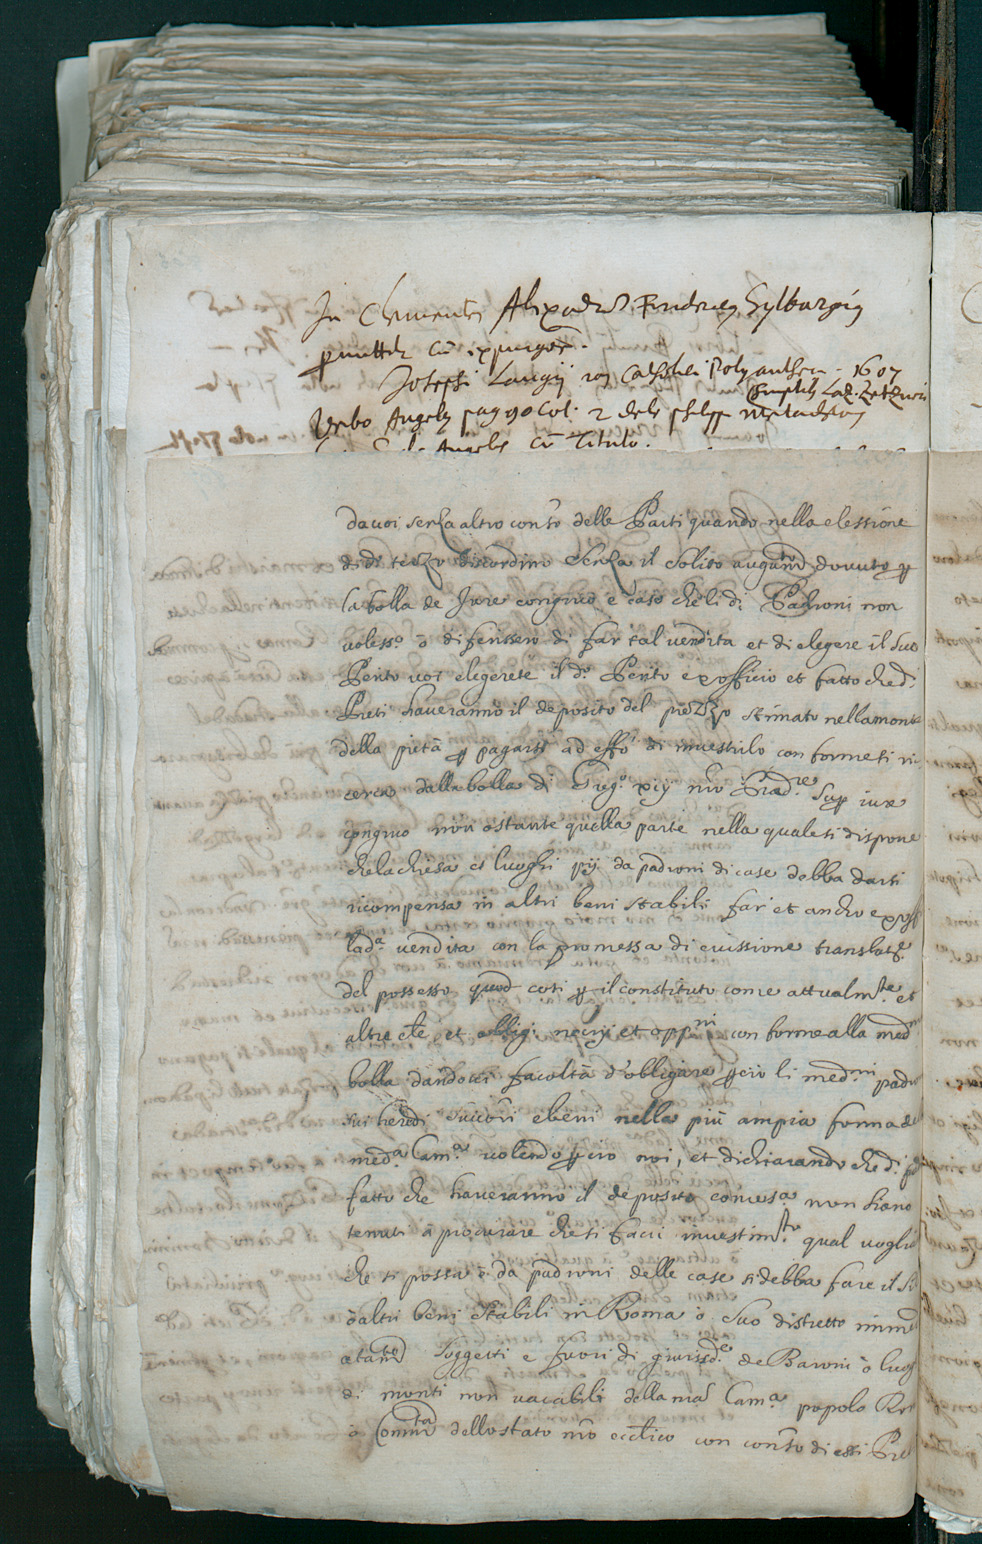 In Clementis Alexadr Frederici Sylburgij
permittit cū expurgat.
Josephi Langij Polyanthea - 1607
Verbo Angeli pag 90 Col. 2 dele philipp Melancthon
Angelis cū Titulo.
da voi senza altro conso delle Parti quando nella elessione
di di terzo discordino senza il solito augumto dovuto p
la bolla de Jure congruo e caso che li di Padroni non
volesso ò difensero di far tal vendita et di elegere il suo
Perito voi elegerete il do Perito ex officio et fatto che di
Preti haveranno il deposito del prezzo stimato nella monte
della pietà p pagarsi ad effo di investirlo conforme si ri
cerca dalla bolla di Grego xiij nro Prade sup iure
congruo non ostante quella parte nella quale si dispone
che la chiesa et luoghi pij da padroni di case debba darsi
ricompensa in altri beni stabili far et ancho
lada vendita con la promessa di evissione translate
del possesso quod coti p il constituto come attualmte et
altre cle et oblig: necrij et oppni conforme alla meda
bolla dandovi facoltà d'obligare pcio li medmi padro
sui heredi succri e beni nella più ampia forma de
meda Cama volendo pcio noi, et dichiarando che di
fatto che haveranno il deposito non siano
tenuti à procurare che si facci investimto qual voglia
che si possa ò da padroni delle case si debba fare il
ò altri beni stabili in Roma ò suo distretto imme
atamte soggetti e fuori di giurisde de Baroni ò luog
di monti non vacabili della nra Cama popolo Ro
ò Commta dello stato nro eccltico con conso di essi Pre